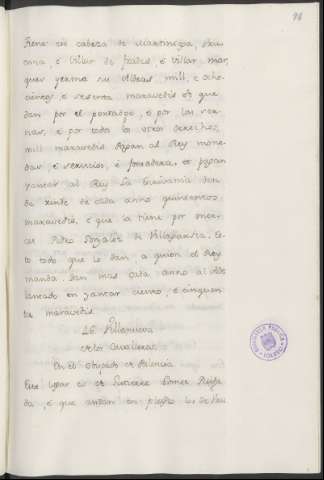 96
tiene en cabeza de Martiniega, Seu
cona, e Villar de frades, e Villar mar,
quer yerma su Aldeas mill, e ocho
cientos, e sesenta maravedis et que
dan por el portadgo, e por las ser
nas, e por todos los otros derechos,
mill maravedis pagan al Rey mone
das e servicios, e fonsadera, et pagan
yantar al Rey La Escrivania den
de rinde de cada anno quinientos
maravedis, e que la tiene por mer
ced Pedro Gonzalez de Villa
to todo que lo dan a quien el Rey
manda, dan mas cada anno al Ade
lantado en yantar ciento, e cinquen
ta maravedis.
26 Villanueva
de los Cavalleros
En el Obispado de Palencia
Este lugar es de Gutierre Gomez
da, e que andan en pleyto los de
BIBLIOTECA PUBLICA
TOLEDO